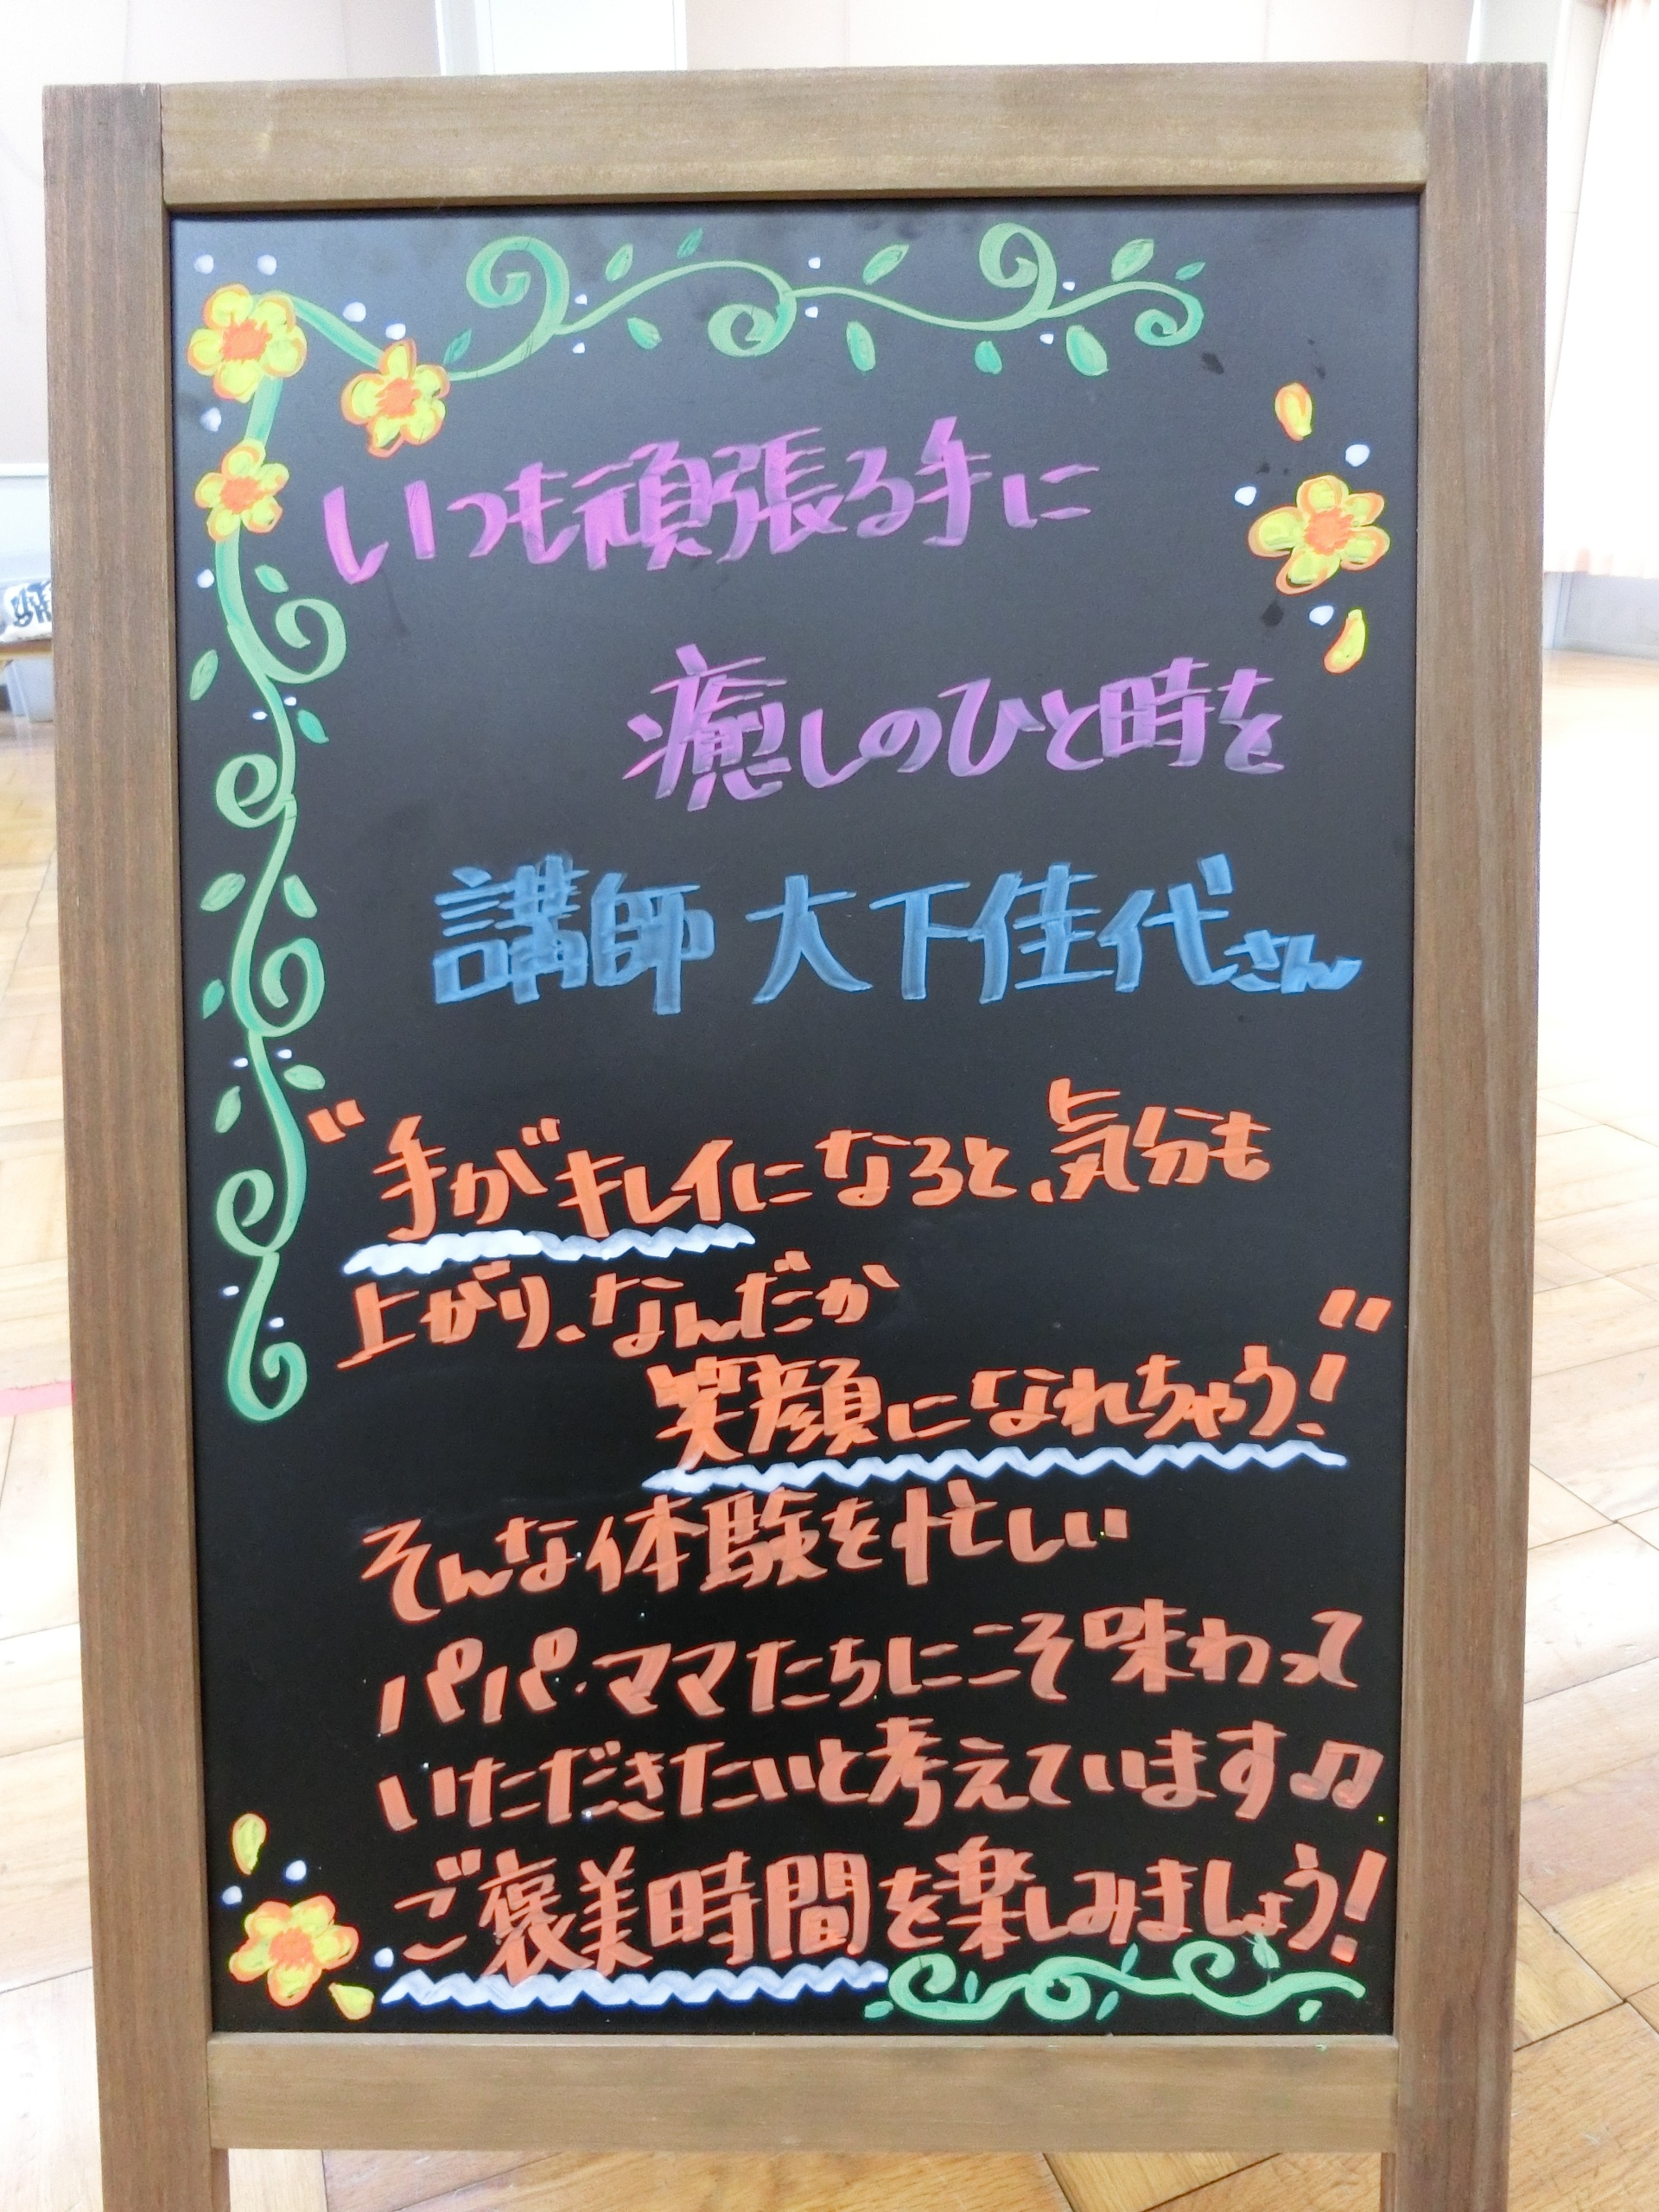 いつも頑張る手に
癒しのひと時を
講師 大下佳代さん
"手がキレイになると、気分も
上がり、なんだか
笑顔になれちゃう!"
そんな体験を忙しい
パパ・ママたちにこそ味わって
いただきたいと考えています♫
ご褒美時間を楽しみましょう!